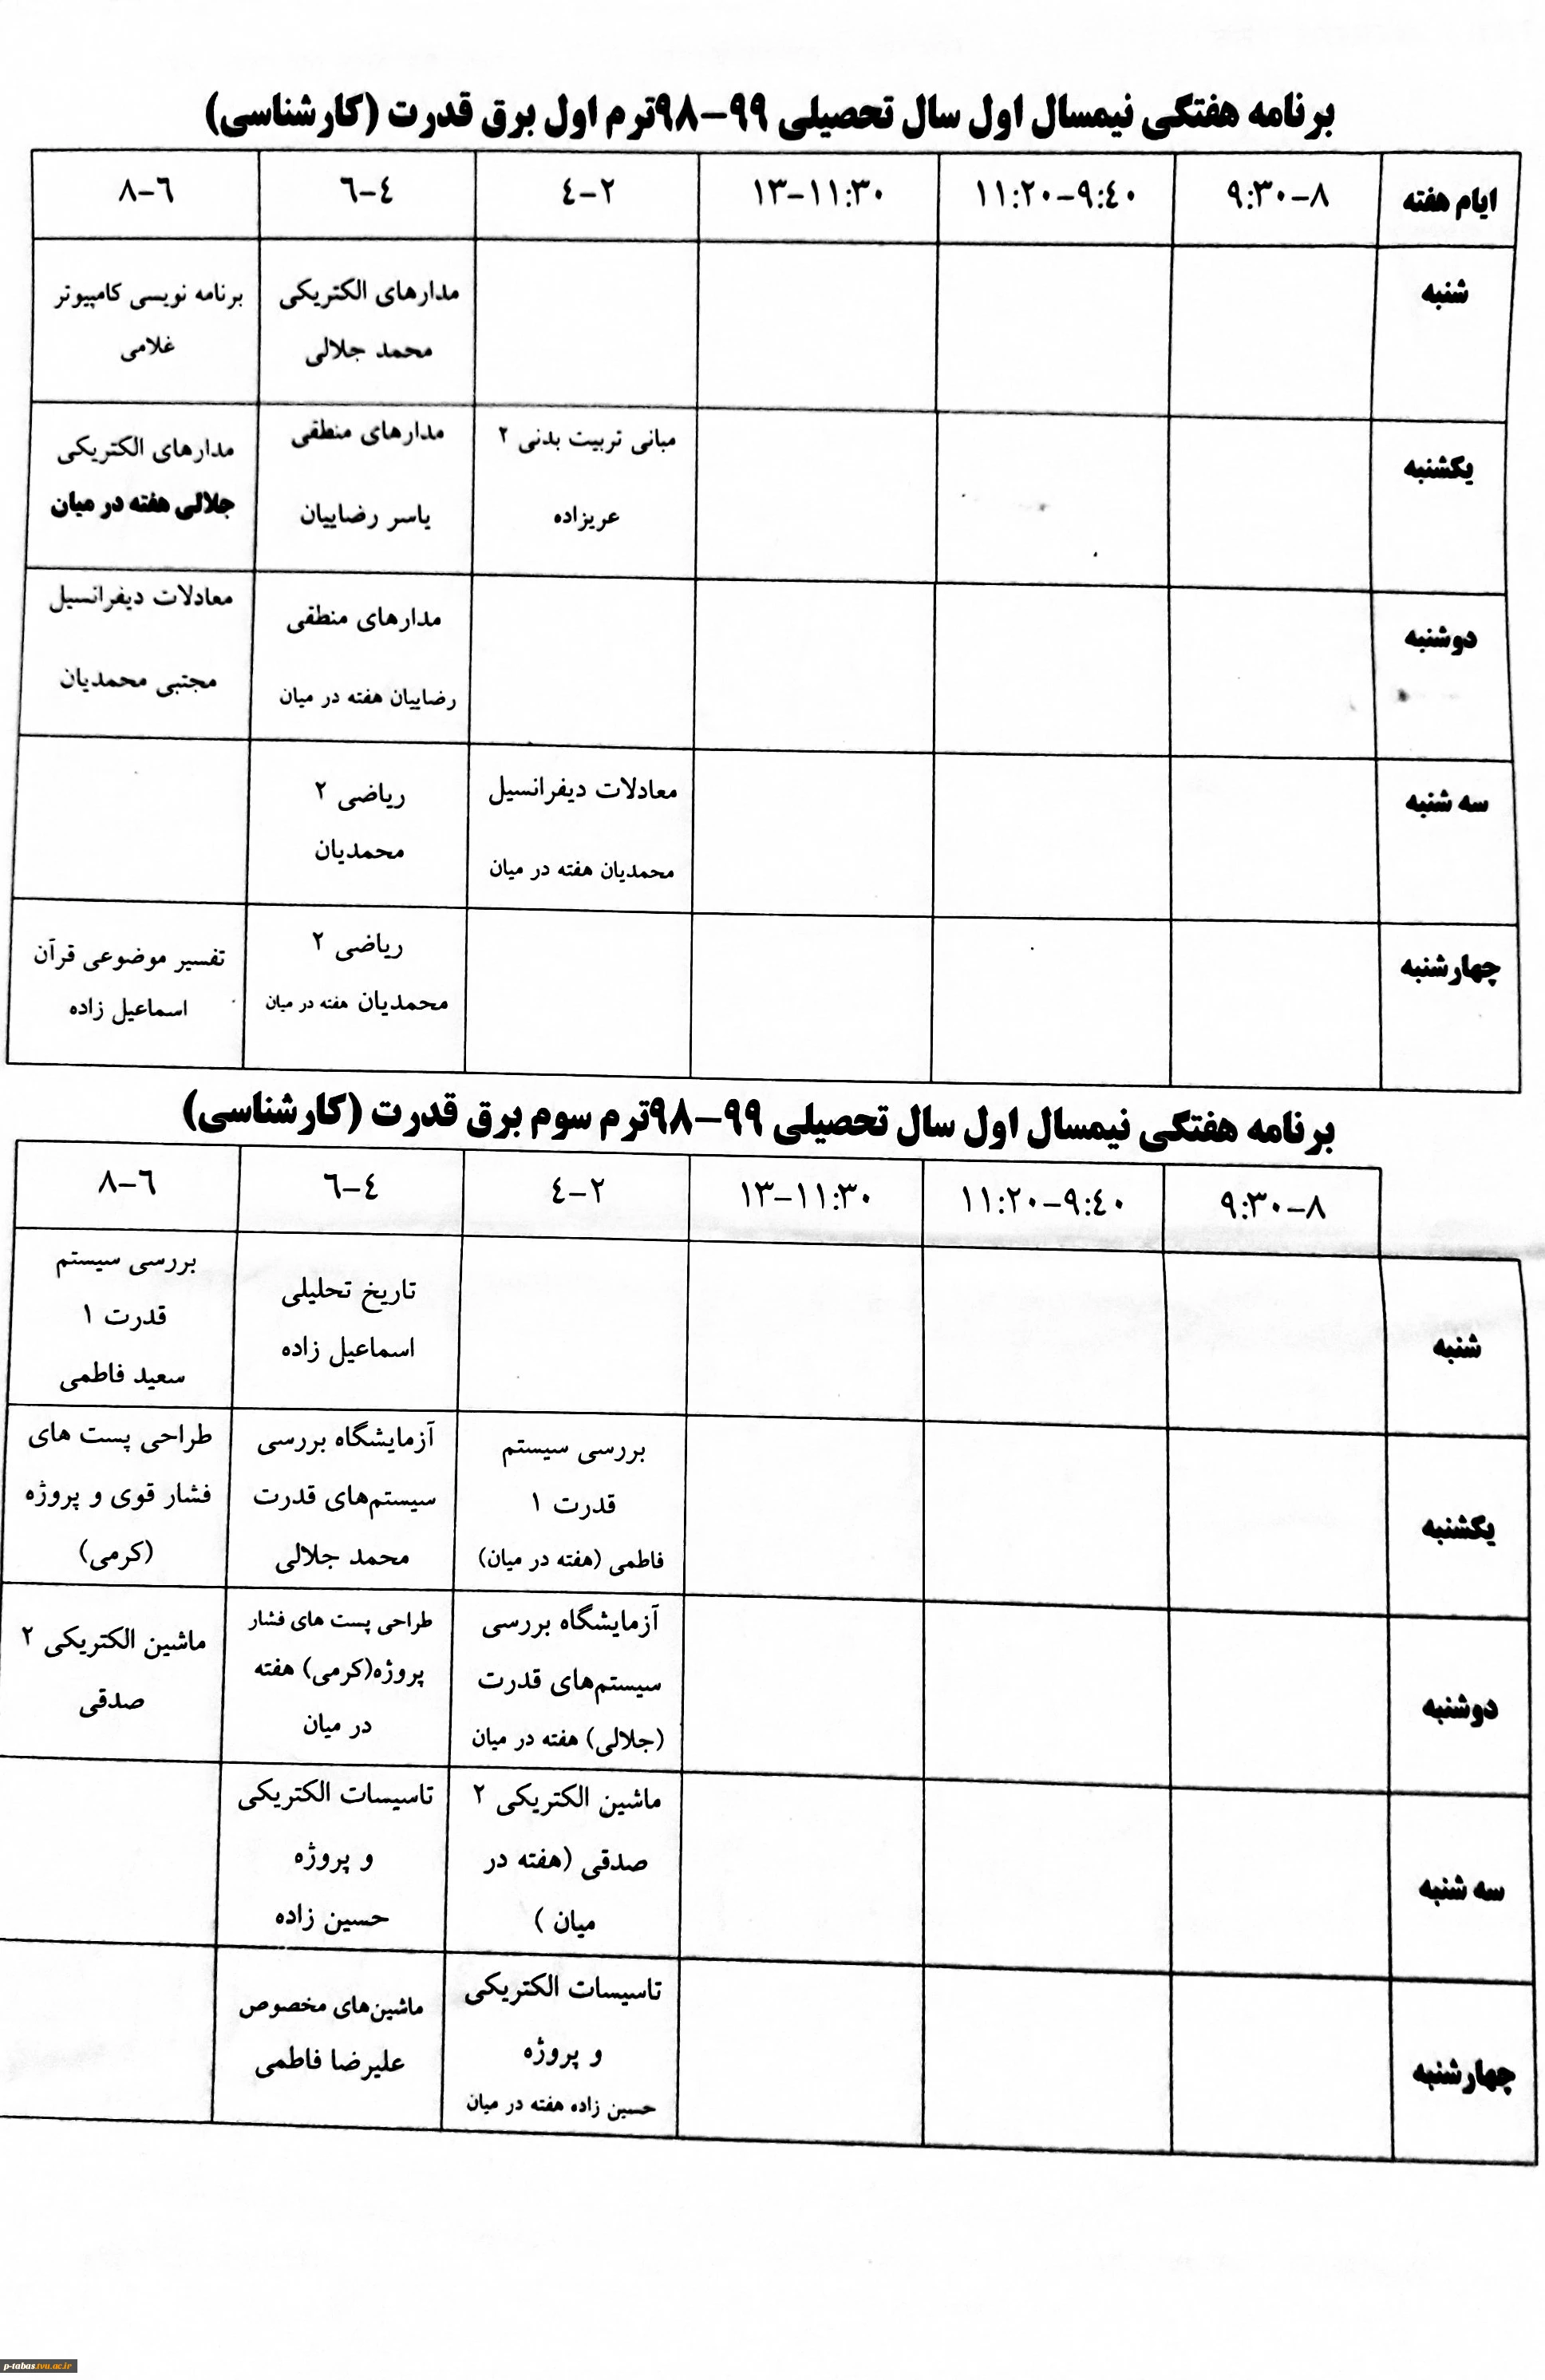 برنامه هفتگی نیمسال اول سال تحصیلی ۹۹-۹۸ترم اول برق قدرت (کارشناسی)
ایام هفته
۸-۹:۳۰
۹:٤۰-۱۱:۲۰
۱۱:۳۰-۱۳
۲-٤
٤-٦
٦-۸
شنبه
مدارهای الکتریکی
محمد جلالی
برنامه نویسی کامپیوتر
غلامی
یکشنبه
مبانی تربیت بدنی ۲
عریزاده
مدارهای منطقی
یاسر رضاییان
مدارهای الکتریکی
جلالی هفته در میان
دوشنبه
مدارهای منطقی
رضاییان هفته در میان
معادلات دیفرانسیل
مجتبی محمدیان
سه شنبه
معادلات دیفرانسیل
محمدیان هفته در میان
ریاضی ۲
محمدیان
چهارشنبه
ریاضی ۲
محمدیان هفته در میان
تفسیر موضوعی قرآن
اسماعیل زاده
برنامه هفتگی نیمسال اول سال تحصیلی ۹۹-۹۸ترم سوم برق قدرت (کارشناسی)
۸-۹:۳۰
۹:٤۰-۱۱:۲۰
۱۱:۳۰-۱۳
۲-٤
٤-٦
٦-۸
شنبه
تاریخ تحلیلی
اسماعیل زاده
بررسی سیستم
قدرت ۱
سعید فاطمی
یکشنبه
بررسی سیستم
قدرت ۱
فاطمی (هفته در میان)
آزمایشگاه بررسی
سیستم‌های قدرت
محمد جلالی
طراحی پست های
فشار قوی و پروژه
(کرمی)
دوشنبه
آزمایشگاه بررسی
سیستم‌های قدرت
(جلالی) هفته در میان
طراحی پست های فشار
پروژه(کرمی) هفته
در میان
ماشین الکتریکی ۲
صدقی
سه شنبه
ماشین الکتریکی ۲
صدقی (هفته در
میان )
تاسیسات الکتریکی
و پروژه
حسین زاده
چهارشنبه
تاسیسات الکتریکی
و پروژه
حسین زاده هفته در میان
ماشین‌های مخصوص
علیرضا فاطمی
p-tabas.tvu.ac.ir